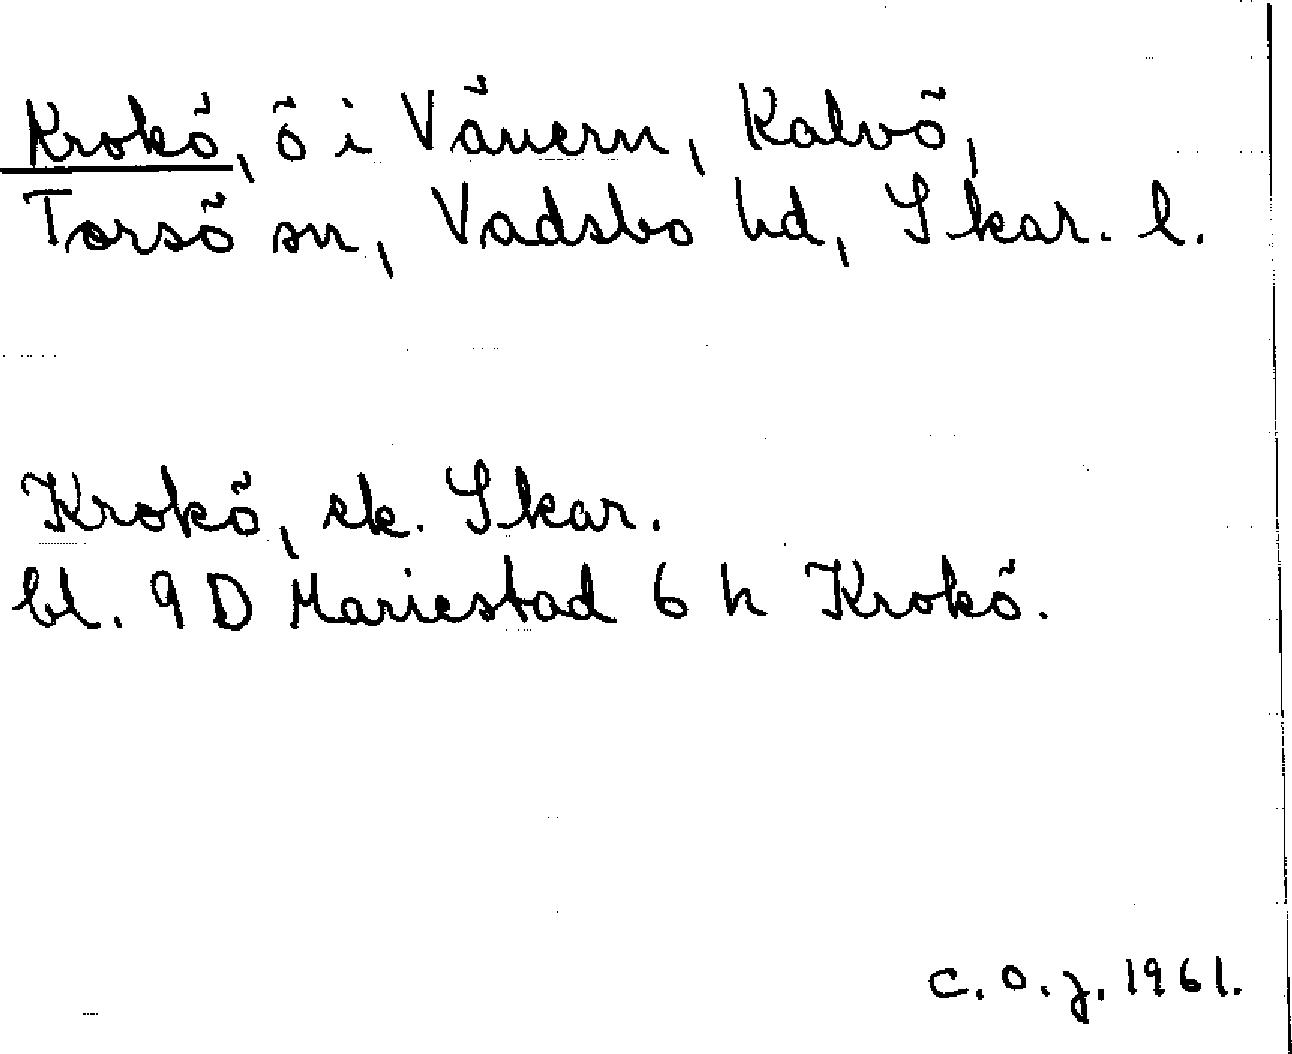 Krokö, ö i Vänern, Kalvö,
Torsö sn, Vadsbo hd, Skar. l.
Krokö, ek. Skar.
bl. 9 D Mariestad 6 h Krokö.
C. O. J. 1961.